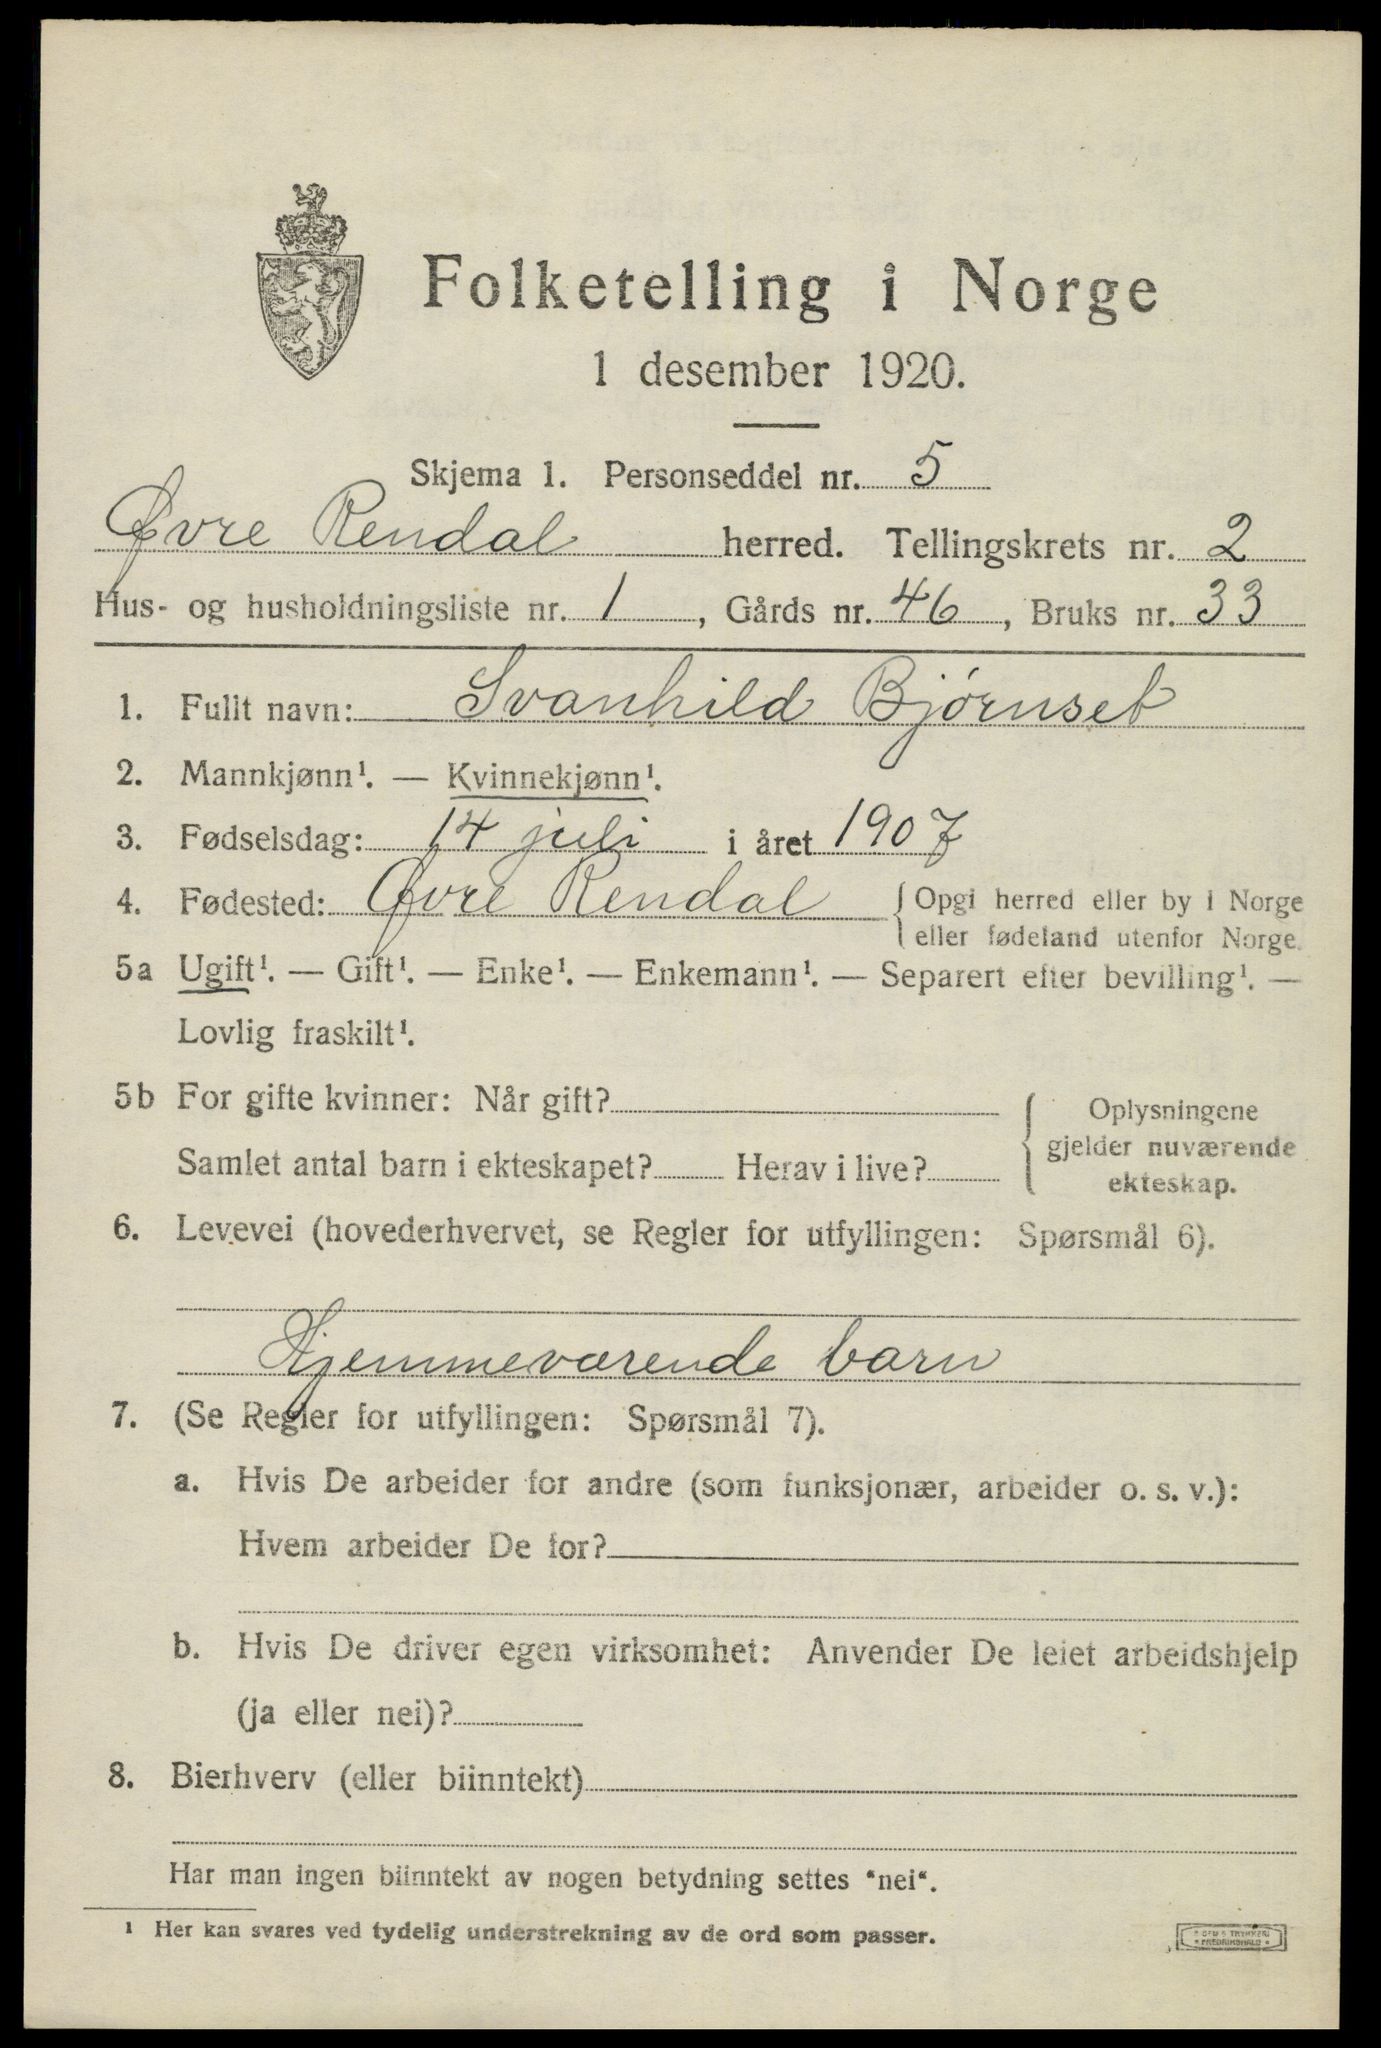 Folketelling i Norge
1 desember 1920.
Skjema 1. Personseddel nr. 5
Øvre Rendal herred. Tellingskrets nr. 2
Hus- og husholdningsliste nr. 1, Gårds nr. 46, Bruks nr. 33
1. Fullt navn: Svanhild Bjørnset
2. Mannkjønn¹. — Kvinnekjønn¹.
3. Fødselsdag: 14 juli i året 1907
4. Fødested: Øvre Rendal { Opgi herred eller by i Norge
eller fødeland utenfor Norge.
5a Ugift¹. — Gift¹. — Enke¹. — Enkemann¹. — Separert efter bevilling¹. —
Lovlig fraskilt¹.
5b For gifte kvinner: Når gift?
Samlet antal barn i ekteskapet? Herav i live?
{ Oplysningene
gjelder nuværende
ekteskap.
6. Levevei (hovederhvervet, se Regler for utfyllingen: Spørsmål 6).
Hjemmeværende barn
7. (Se Regler for utfyllingen: Spørsmål 7).
a. Hvis De arbeider for andre (som funksjonær, arbeider o. s. v.):
Hvem arbeider De for?
b. Hvis De driver egen virksomhet: Anvender De leiet arbeidshjelp
(ja eller nei)?
8. Bierhverv (eller biinntekt)
Har man ingen biinntekt av nogen betydning settes "nei".
¹ Her kan svares ved tydelig understrekning av de ord som passer.